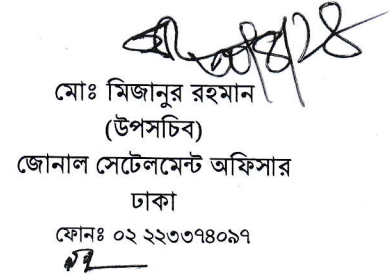 মোঃ মিজানুর রহমান
(উপসচিব)
জোনাল সেটেলমেন্ট অফিসার
ঢাকা
ফোনঃ ০২ ২২৩৩৭৪০৯৭